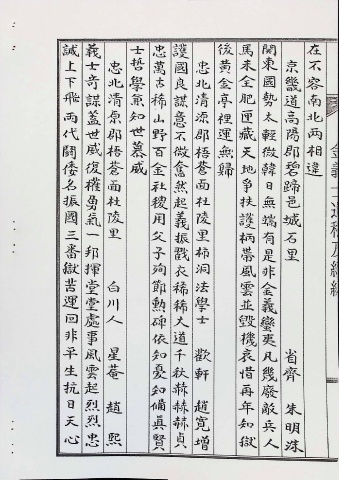 在不容南北兩相違
京畿道高陽郡碧蹄邑城石里 省齊 朱明洙
關東國勢太輕微韓日無端有是非金義蠻夷凡幾廢敵兵人
馬末全肥匣藏天地爭扶護柄帶風雲並毀機哀惜再年知獄
後黃金亭裡運無歸
忠北清原郡梧荅面杜陵里柿洞法學士 歡軒 趙寬增
護國良謀意不微奮然起義振戰衣稀稀大道千秋赫赫貞
忠萬古稀山野百金社稷用父子殉節勳碑依知憂知備眞賢
士哲學兼知世慕威
忠北清原郡梧荅面杜陵里 白川人 星菴 趙熙
義士奇謀蓋世威復權勇氣一邦揮堂堂處事風雲起烈烈忠
誠上下飛兩代鬪倭名振國三番獄苦運回非平生抗日天心